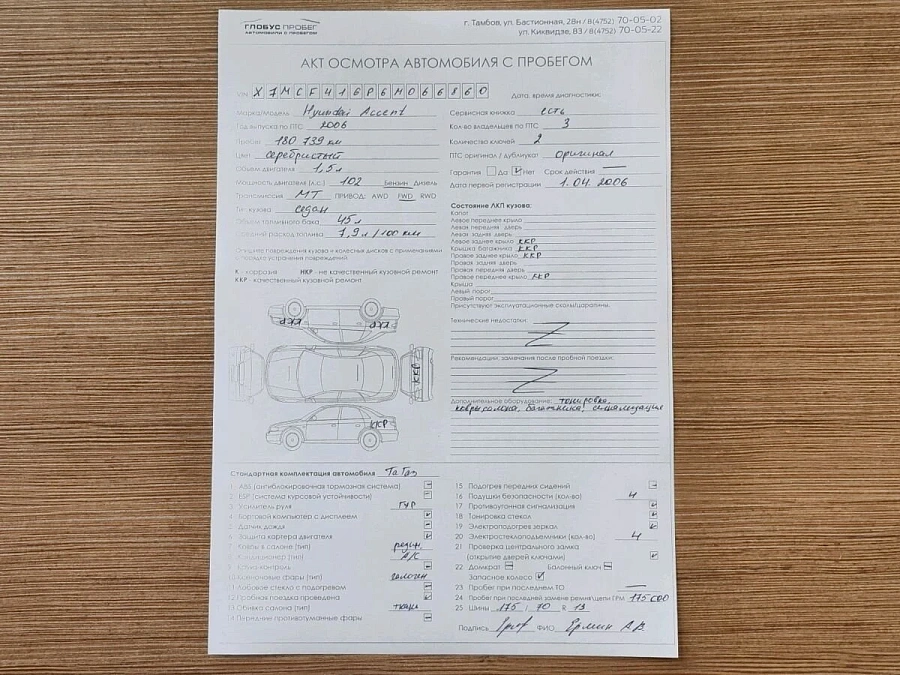 ГЛОБУС ПРОБЕГ
АВТОМОБИЛИ С ПРОБЕГОМ
г. Тамбов, ул. Бастионная, 28н / 8(4752) 70-05-02
ул. Киквидзе, 83 / 8(4752) 70-05-22
АКТ ОСМОТРА АВТОМОБИЛЯ С ПРОБЕГОМ
VIN X7MCF41GP6M066860
Дата, время диагностики:
Марка/Модель Hyundai Accent
Год выпуска по ПТС 2006
Пробег 180 739 км
Цвет серебристый
Объем двигателя 1,5л
Мощность двигателя (л.с.) 102 Бензин Дизель
Трансмиссия МТ ПРИВОД: AWD FWD RWD
Тип кузова: седан
Объем топливного бака 45л
Средний расход топлива 7,9л/100км
Сервисная книжка есть
Кол-во владельцев по ПТС 3
Количество ключей 2
ПТС оригинал / дубликат оригинал
Гарантия Да Нет Срок действия —
Дата первой регистрации 1.04.2006
Внешние повреждения кузова и колесных дисков с примечаниями
о порядке устранения повреждений.
К - коррозия НКР - не качественный кузовной ремонт
ККР - качественный кузовной ремонт
Состояние ЛКП кузова:
Капот
Левое переднее крыло
Левая передняя дверь
Левая задняя дверь
Левое заднее крыло ККР
Крышка багажника ККР
Правое заднее крыло ККР
Правая задняя дверь
Правая передняя дверь
Правое переднее крыло ККР
Крыша
Левый порог
Правый порог
Присутствуют эксплуатационные сколы/царапины.
ККР ККР
ККР
ККР
Технические недостатки:
Z
Рекомендации, замечания после пробной поездки:
Z
Дополнительное оборудование: тонировка,
ковры салона, багажника, сигнализация
Стандартная комплектация автомобиля ТаГаз
1 ABS (антиблокировочная тормозная система) —
2 ESP (система курсовой устойчивости) —
3 Усилитель руля ГУР
4 Бортовой компьютер с дисплеем
5 Датчик дождя —
6 Защита картера двигателя
7 Ковры в салоне (тип) резин.
8 Кондиционер (тип) А/С
9 Круиз-контроль —
10 Ксеноновые фары (тип) галоген
11 Лобовое стекло с подогревом —
12 Пробная поездка проведена
13 Обивка салона (тип) ткань
14 Передние противотуманные фары —
15 Подогрев передних сидений —
16 Подушки безопасности (кол-во) 4
17 Противоугонная сигнализация
18 Тонировка стекол
19 Электроподогрев зеркал
20 Электростеклоподъемники (кол-во) 4
21 Проверка центрального замка
(открытие дверей ключами)
22 Домкрат — Балонный ключ —
Запасное колесо
23 Пробег при последнем ТО —
24 Пробег при последней замене ремня/цепи ГРМ 175 000
25 Шины 175 / 70 R 13
Подпись ФИО Ермин А.В.